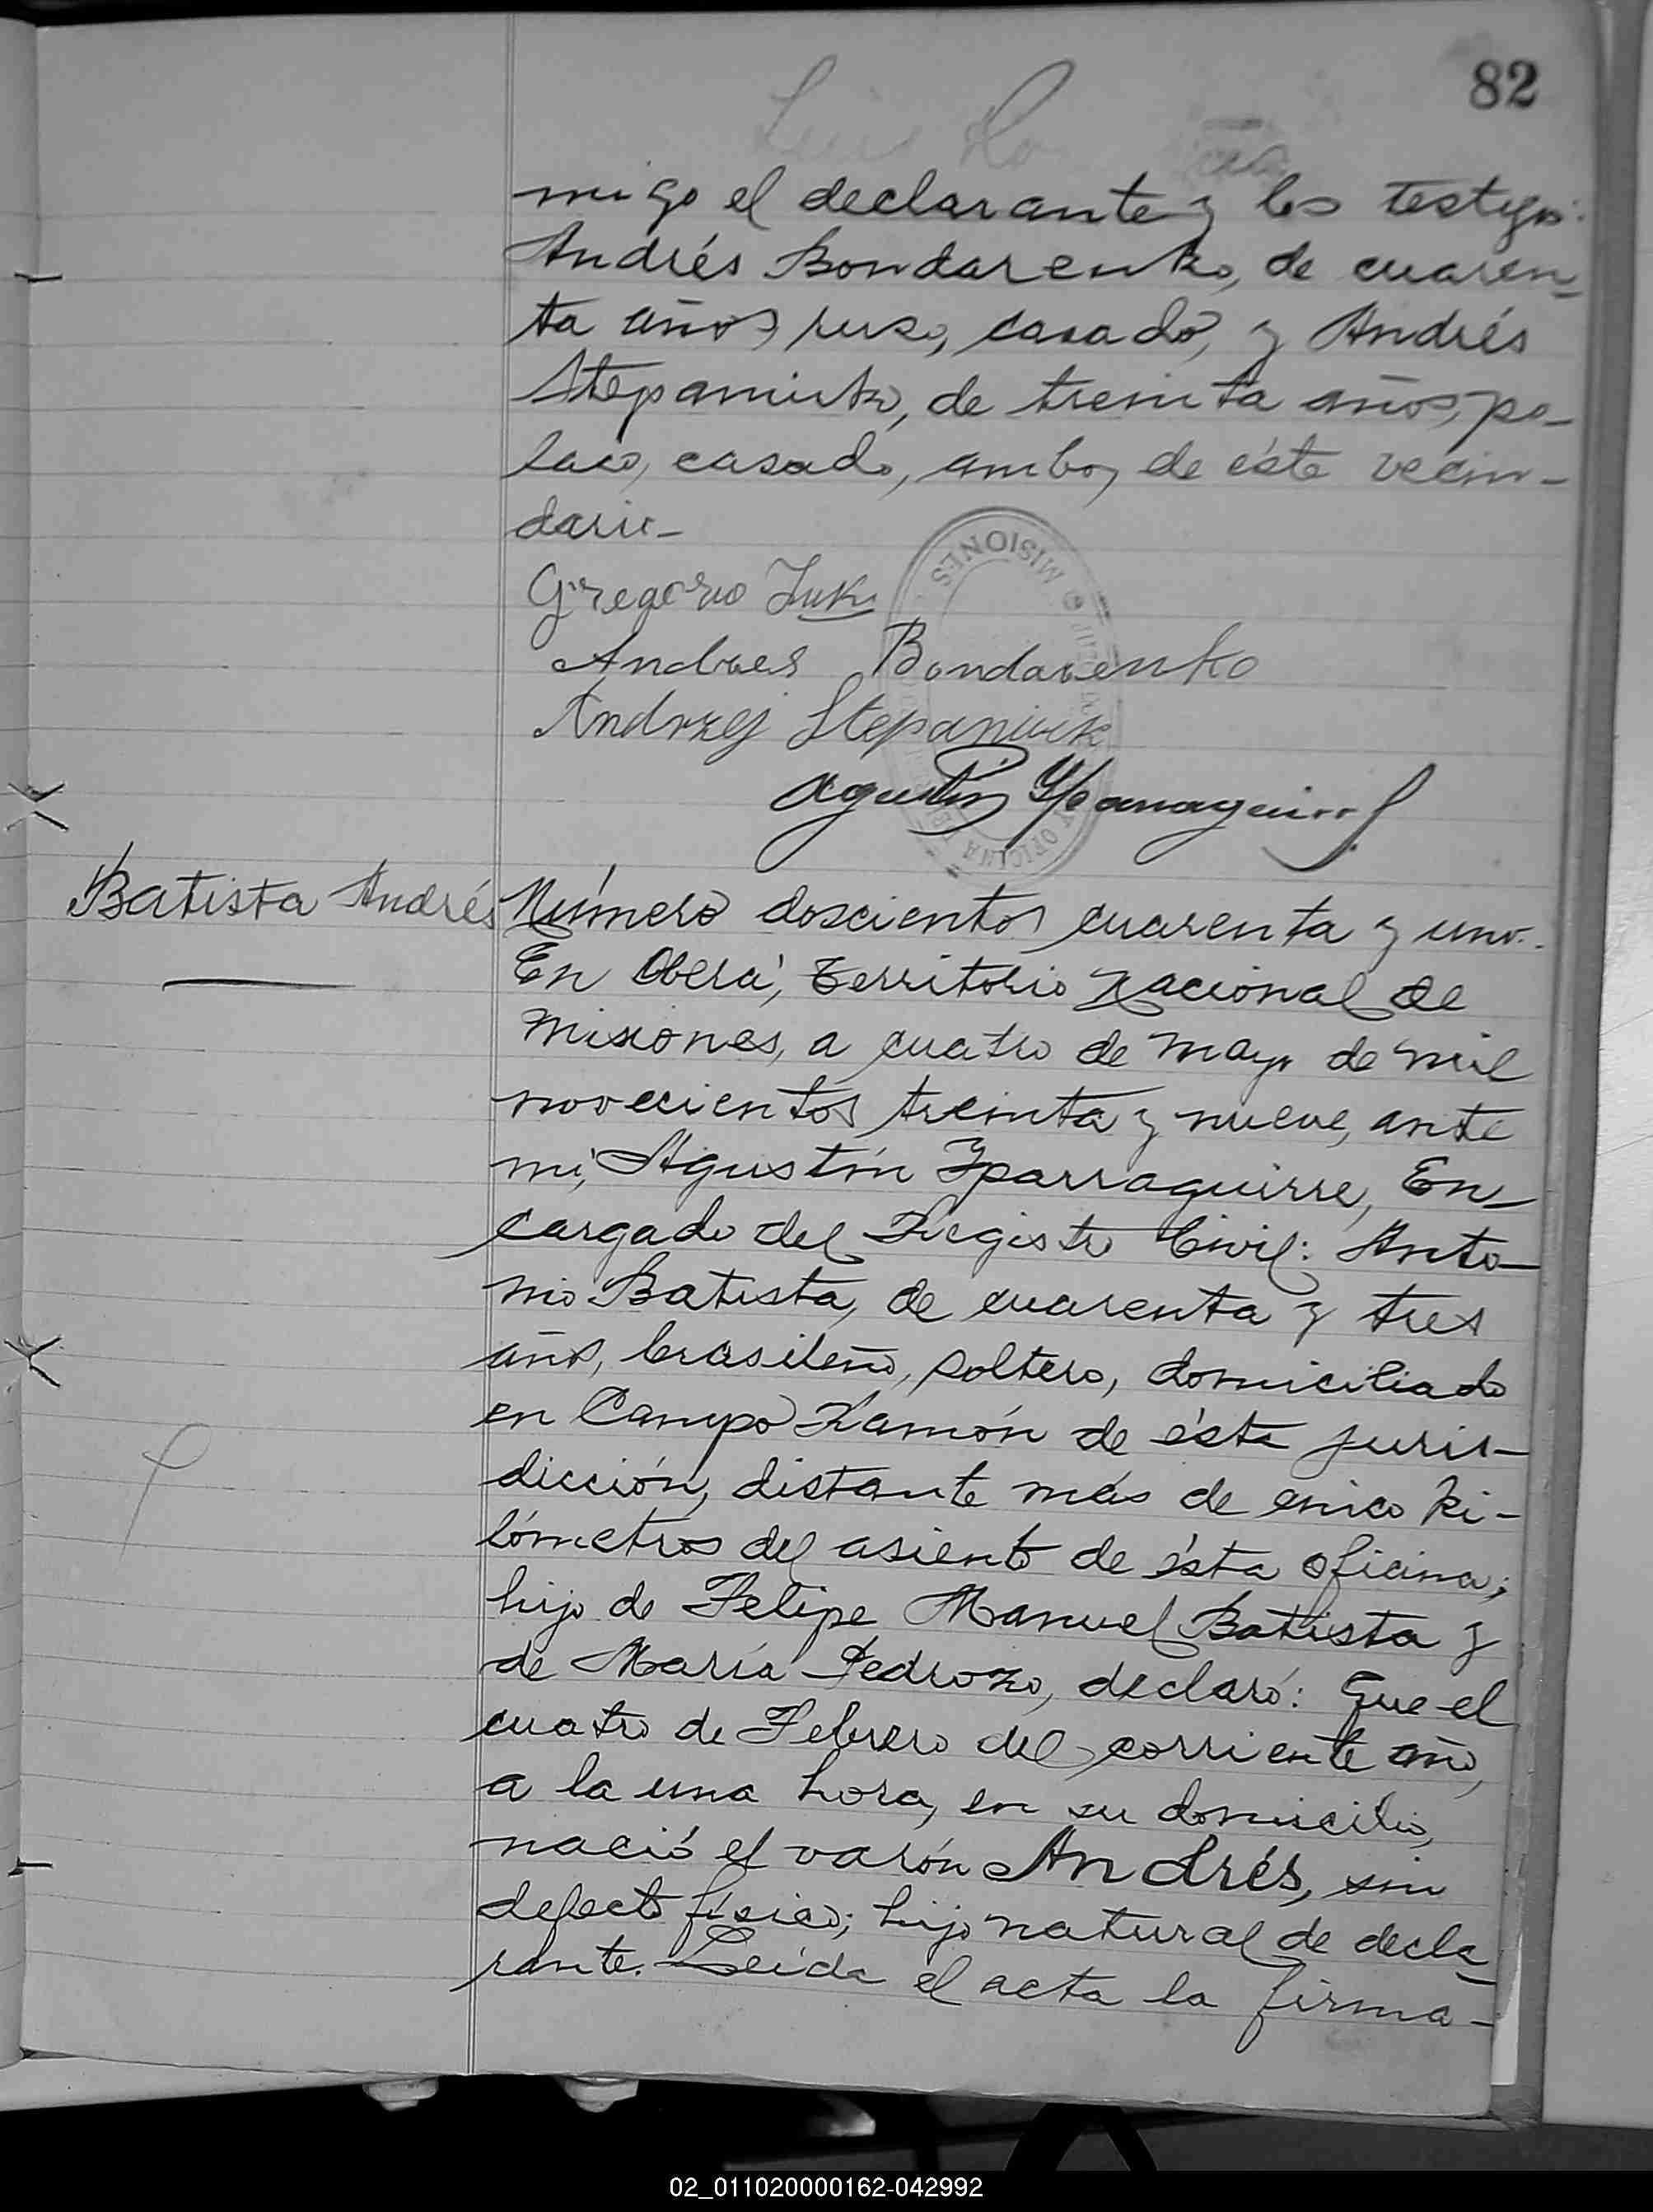 82
migo el declarante y los testigos:
Andrés Bondarenko, de cuaren-
ta años, ruso, casado, y Andrés
Stepaniuk, de treinta años, po-
laco, casado, ambos de éste vecin-
dario-
Gregorio
Andres Bondarenko
Andrzej Stepaniuk
MISIONES
OFICINA
Agustin Yparraguirre
Batista Andrés
Número doscientos cuarenta y uno.
En Oberá, Territorio Nacional de
Misiones, a cuatro de Mayo de mil
novecientos treinta y nueve, ante
mi, Agustín Yparraguirre, En-
cargado del Registro Civil: Anto-
nio Batista, de cuarenta y tres
años, brasileño, soltero, domiciliado
en Campo Ramón de ésta juris-
dicción, distante más de cinco ki-
lómetros del asiento de ésta oficina;
hijo de Felipe Manuel Batista y
de María Pedrozo, declaró: Que el
cuatro de Febrero del corriente año,
a la una hora, en su domicilio,
nació el varón Andrés, sin
defecto físico; hijo natural de decla-
rante. Leida el acta la firma-
02_011020000162-042992